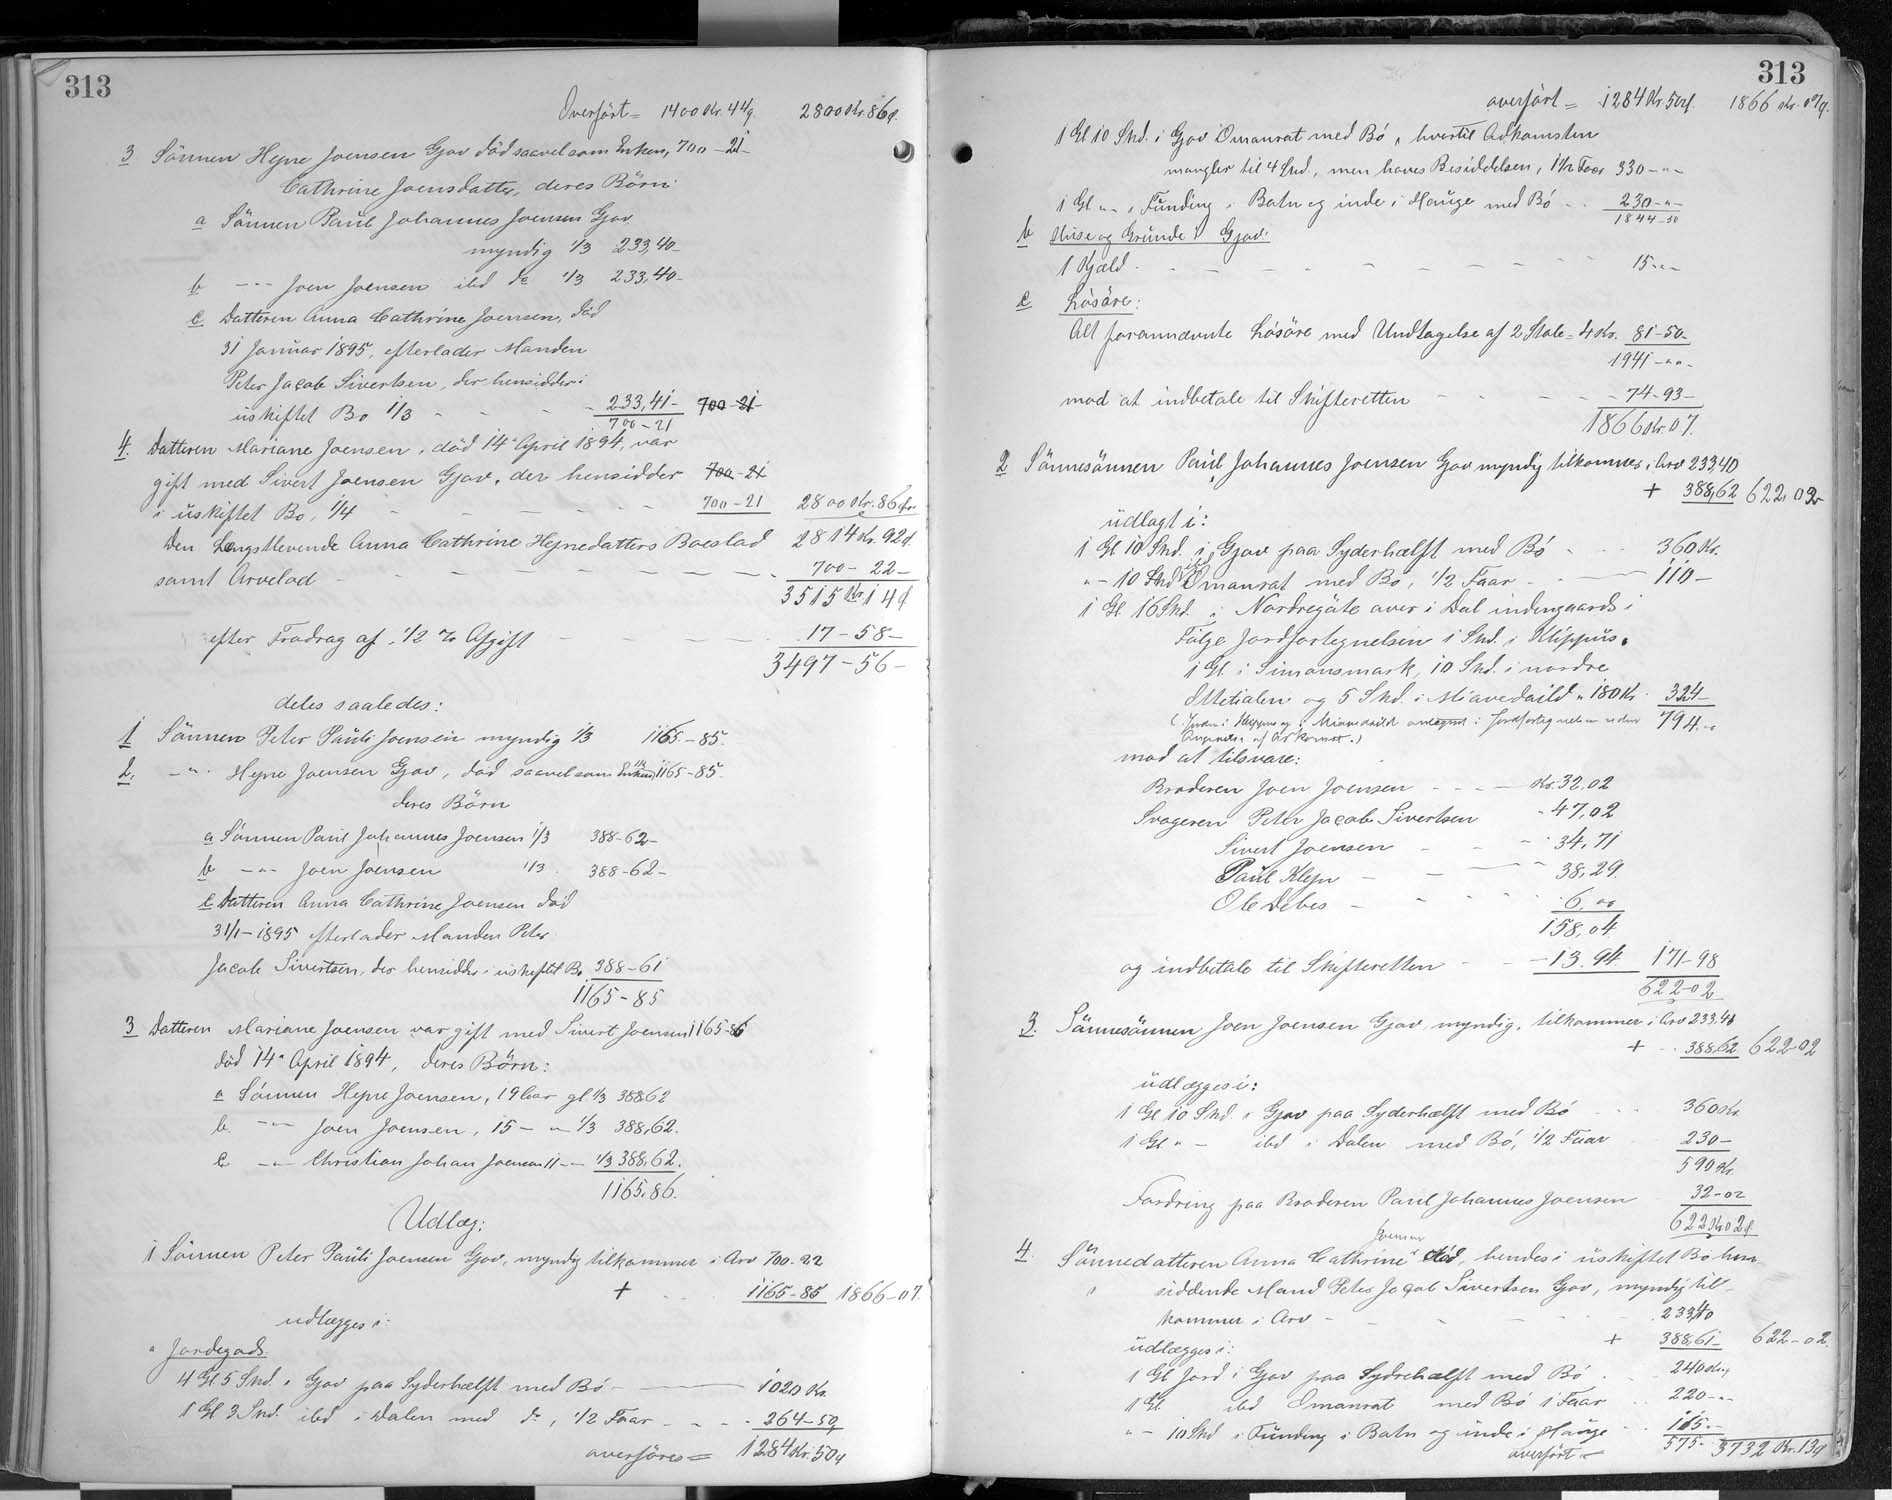 313
Overført = 1400 Kr. 44 ø. 2800 Kr. 86 ø.
3 Sönnen Hejne Joensen Gjov död saavelsom Enken, 700 - 21 -
Cathrine Joensdatter, deres Börn:
a Sönnen Paul Johannes Joensen Gjov
myndig 1/3 233,40 -
b -"- Joen Joensen ibd do 1/3 233,40 -
c Datteren Anna Cathrine Joensen, död
31 Januar 1895, efterlader Manden
Peter Jacob Sivertsen, der hensidder i
uskiftet Bo 1/3 - - - 233,41 - 700 - 21 -
700 - 21
4. Datteren Mariane Joensen, död 14de April 1894, var
gift med Sivert Joensen Gjov, der hensidder 700 - 21
i uskiftet Bo, 1/4 - - - 700 - 21 2800 Kr. 86 ø.
Den Længstlevende Anna Cathrine Hejnedatters Boeslod 2814 Kr. 92 ø.
samt Arvelod - - - 700 - 22 -
3515 Kr 14 ø
efter Fradrag af 1/2 % Afgift - - - 17 - 58 -
3497 - 56 -
deles saaledes:
1 Sönnen Peter Pauli Joensen myndig 1/3 1165 - 85.
2. -"- Hejne Joensen Gjov, död saavelsom Enken 1/3 1165 - 85.
deres Börn
a Sönnen Paul Johannes Joensen 1/3 388 - 62 -
b -"- Joen Joensen 1/3 388 - 62 -
c Datteren Anna Cathrine Joensen död
31/1 - 1895 efterlader Manden Peter
Jacob Sivertsen, der hensidder i uskiftet Bo 388 - 61
1165 - 85
3 Datteren Mariane Joensen var gift med Sivert Joensen 1165 - 86
död 14de April 1894, deres Börn:
a Sönnen Hejne Joensen, 19 Aar gl 1/3 388 62
b. -"- Joen Joensen, 15 - " - 1/3 388,62.
c -"- Christian Johan Joensen 11 - " - 1/3 388,62.
1165,86.
Udlæg:
1 Sönnen Peter Pauli Joensen Gjov, myndig tilkommer i Arv 700.22
+ 1165 - 85 1866 - 07.
udlægges i:
a Jordegods.
4 Gl 5 Skd. i Gjov paa Syderhælft med Bö - 1020 Kr.
1 Gl 3 Skd. ibd i Dalen med do, 1/2 Faar - - - 264 - 50
overføres = 1284 Kr. 50 ø
313
overført = 1284 Kr. 50 ø. 1866 Kr. 07 ø.
1 Gl 10 Skd. i Gjov Omanrat med Bö, hvortil Adkomsten
mangler til 4 Skd., men haves Besiddelsen, 1 1/2 Faar 330 - " -
1 Gl " - i Funding i Botn og inde i Hauge med Bö - - 230 - " -
1844 - 50
b Huse og Grunde i Gjov:
1 Hjeld - - - 15 - " -
c Lösöre:
Alt forannævnte Lösöre med Undtagelse af 2 Stole = 4 Kr. 81 - 50 -
1941 - " -
mod at indbetale til Skifteretten - - - 74 - 93 -
1866 Kr. 07.
2 Sönnesönnen Paul Johannes Joensen Gjov myndig tilkommer i Arv 233,40
+ 388,62 622,02
udlagt i:
1 Gl 10 Skd. i Gjov paa Syderhælft med Bö - - - 360 Kr.
" - 10 Skd ibd Omanrat med Bö, 1/2 Faar - - 110 -
1 Gl 16 Skd. i Nordregöte over i Dal indengaards i
Følge Jordfortegnelsen 1 Skd. i Klippus,
1 Gl. i Simonsmark, 10 Skd. i nordre
og 5 Skd. i Miavedaild a 180 Kr. 324
(Jorden i Klippus og i Miavedaild i Jordfortegnelsen uden 794, "
Angivelse af Adkomst.)
mod at tilsvare:
Broderen Joen Joensen - - - Kr. 32,02
Svogeren Peter Jacob Sivertsen - 47,02
Sivert Joensen - - - 34,71
Paul Klejn - - - 38,29
Ole Debes - - - 6, "
158,04
og indbetale til Skifteretten - - 13.94 171 - 98
622 - 02
3. Sönnesönnen Joen Joensen Gjov myndig, tilkommer i Arv 233,40
+ - 388,62 622 - 02
udlægges i:
1 Gl 10 Skd. i Gjov paa Syderhælft med Bö - - - 360 Kr.
1 Gl " - ibd i Dalen med Bö, 1/2 Faar - 230 -
590 Kr.
Fordring paa Broderen Paul Johannes Joensen - 32 - 02
622 Kr 02 ø.
4. Sönnedatteren Anna Cathrine Joensen död, hendes i uskiftet Bo hen
siddende Mand Peter Jacob Sivertsen Gjov, myndig til-
kommer i Arv - - - 233,40
+ 388,61 622 - 02.
udlægges i:
1 Gl Jord i Gjov paa Sydrehælft med Bö - - 240 Kr. "
1 Gl. ibd Omanrat med Bö 1 Faar - - 220 - " -
" - 10 Skd i Funding i Botn og inde i Hauge - - 115 - " -
575 - 3732 Kr. 13 ø
overført =